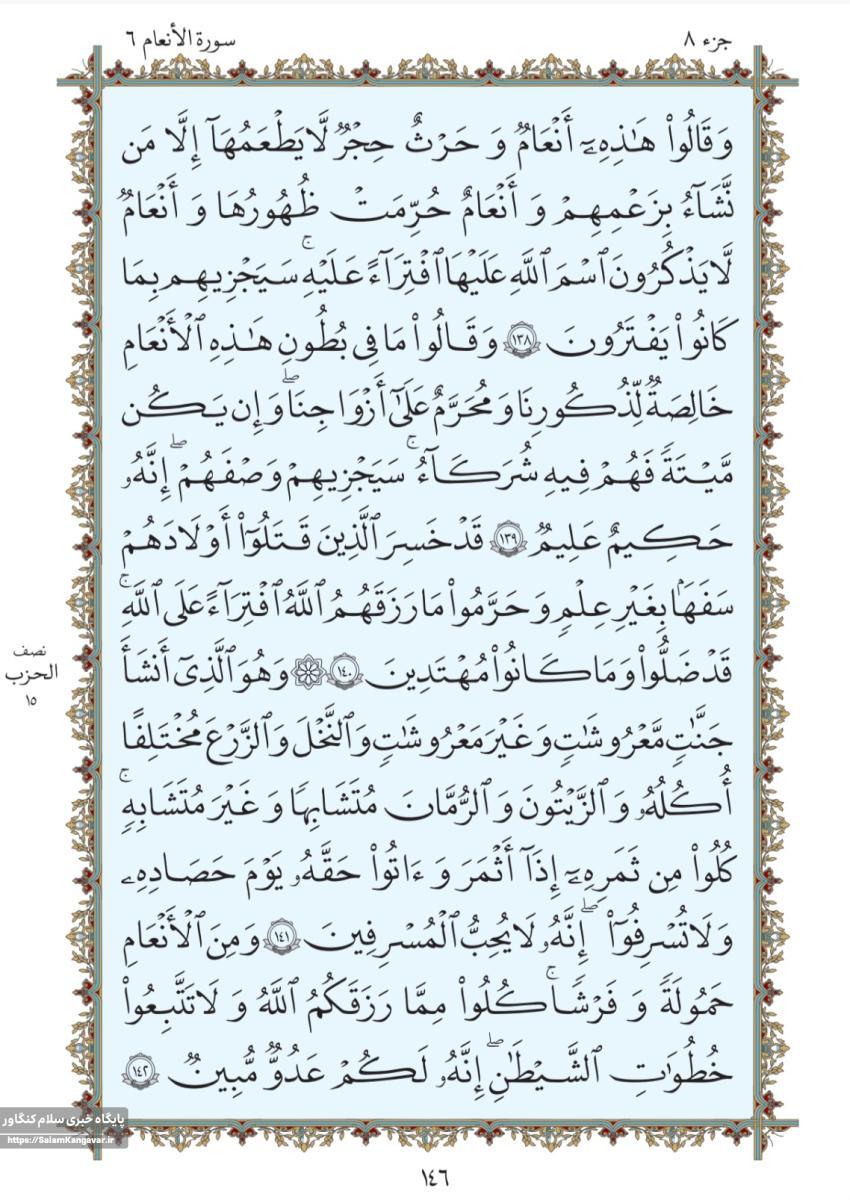 سورة الأنعام ٦
جزء ٨
وَقَالُوا۟ هَـٰذِهِۦٓ أَنْعَـٰمٌ وَ حَرْثٌ حِجْرٌ لَّا يَطْعَمُهَآ إِلَّا مَن
نَّشَآءُ بِزَعْمِهِمْ وَ أَنْعَـٰمٌ حُرِّمَتْ ظُهُورُهَا وَ أَنْعَـٰمٌ
لَّا يَذْكُرُونَ ٱسْمَ ٱللَّهِ عَلَيْهَا ٱفْتِرَآءً عَلَيْهِ ۚ سَيَجْزِيهِم بِمَا
كَانُوا۟ يَفْتَرُونَ ١٣٨ وَقَالُوا۟ مَا فِى بُطُونِ هَـٰذِهِ ٱلْأَنْعَـٰمِ
خَالِصَةٌ لِّذُكُورِنَا وَ مُحَرَّمٌ عَلَىٰٓ أَزْوَٰجِنَا ۖ وَإِن يَكُن
مَّيْتَةً فَهُمْ فِيهِ شُرَكَآءُ ۚ سَيَجْزِيهِمْ وَصْفَهُمْ ۖ إِنَّهُۥ
حَكِيمٌ عَلِيمٌ ١٣٩ قَدْ خَسِرَ ٱلَّذِينَ قَتَلُوٓا۟ أَوْلَـٰدَهُمْ
سَفَهًۢا بِغَيْرِ عِلْمٍ وَ حَرَّمُوا۟ مَا رَزَقَهُمُ ٱللَّهُ ٱفْتِرَآءً عَلَى ٱللَّهِ ۚ
قَدْ ضَلُّوا۟ وَمَا كَانُوا۟ مُهْتَدِينَ ١٤٠ ۞ وَهُوَ ٱلَّذِىٓ أَنشَأَ
جَنَّـٰتٍ مَّعْرُوشَـٰتٍ وَ غَيْرَ مَعْرُوشَـٰتٍ وَٱلنَّخْلَ وَٱلزَّرْعَ مُخْتَلِفًا
أُكُلُهُۥ وَ ٱلزَّيْتُونَ وَ ٱلرُّمَّانَ مُتَشَـٰبِهًا وَ غَيْرَ مُتَشَـٰبِهٍ ۚ
كُلُوا۟ مِن ثَمَرِهِۦٓ إِذَآ أَثْمَرَ وَ ءَاتُوا۟ حَقَّهُۥ يَوْمَ حَصَادِهِۦ
وَلَا تُسْرِفُوٓا۟ ۖ إِنَّهُۥ لَا يُحِبُّ ٱلْمُسْرِفِينَ ١٤١ وَمِنَ ٱلْأَنْعَـٰمِ
حَمُولَةً وَ فَرْشًا ۚ كُلُوا۟ مِمَّا رَزَقَكُمُ ٱللَّهُ وَ لَا تَتَّبِعُوا۟
خُطُوَٰتِ ٱلشَّيْطَـٰنِ ۖ إِنَّهُۥ لَكُمْ عَدُوٌّ مُّبِينٌ ١٤٢
نصف
الحزب
١٥
پایگاه خبری سلام کنگاور
https://SalamKangavar.ir
١٤٦